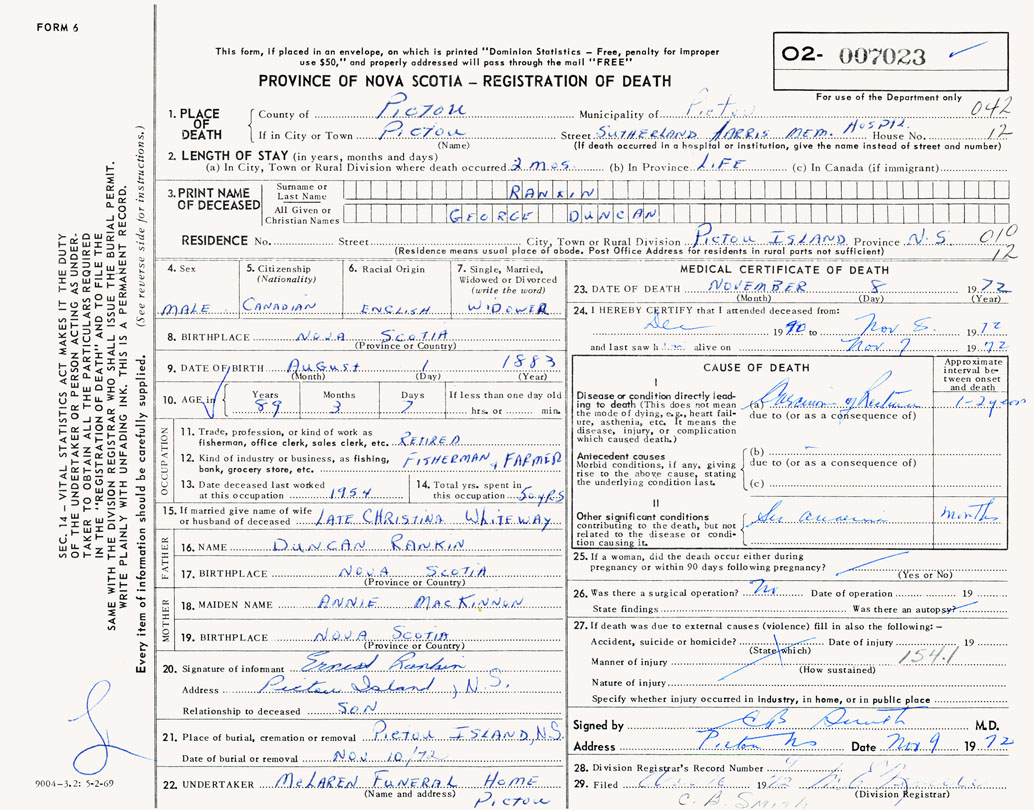 FORM 6
This form, if placed in an envelope, on which is printed "Dominion Statistics – Free, penalty for improper
use $50," and properly addressed will pass through the mail "FREE"
PROVINCE OF NOVA SCOTIA – REGISTRATION OF DEATH
O2- 007023
For use of the Department only
1. PLACE OF DEATH
County of PICTOU Municipality of Pictou 042
If in City or Town PICTOU Street SUTHERLAND HARRIS MEM. HOSPIL. House No. 12
(Name) (If death occurred in a hospital or institution, give the name instead of street and number)
2. LENGTH OF STAY (in years, months and days)
(a) In City, Town or Rural Division where death occurred 2 mos. (b) In Province LIFE (c) In Canada (if immigrant)
3. PRINT NAME OF DECEASED
Surname or Last Name RANKIN
All Given or Christian Names GEORGE DUNCAN
RESIDENCE No. Street City, Town or Rural Division PICTOU ISLAND Province N.S. 010
(Residence means usual place of abode. Post Office Address for residents in rural parts not sufficient) 12
4. Sex
MALE
5. Citizenship (Nationality)
CANADIAN
6. Racial Origin
ENGLISH
7. Single, Married, Widowed or Divorced (write the word)
WIDOWER
8. BIRTHPLACE NOVA SCOTIA
(Province or Country)
9. DATE OF BIRTH AUGUST 1 1883
(Month) (Day) (Year)
10. AGE in Years Months Days If less than one day old
89 3 7 hrs. or min.
OCCUPATION
11. Trade, profession, or kind of work as
fisherman, office clerk, sales clerk, etc. RETIRED
12. Kind of industry or business, as fishing,
bank, grocery store, etc. FISHERMAN, FARMER
13. Date deceased last worked
at this occupation 1954
14. Total yrs. spent in
this occupation 50 YRS
15. If married give name of wife
or husband of deceased LATE CHRISTINA WHITEWAY
FATHER
16. NAME DUNCAN RANKIN
17. BIRTHPLACE NOVA SCOTIA
(Province or Country)
MOTHER
18. MAIDEN NAME ANNIE MACKINNON
19. BIRTHPLACE NOVA SCOTIA
(Province or Country)
20. Signature of informant Ernest Rankin
Address Pictou Island, N.S.
Relationship to deceased SON
21. Place of burial, cremation or removal PICTOU ISLAND, N.S.
Date of burial or removal NOV 10/72
22. UNDERTAKER McLAREN FUNERAL HOME
(Name and address) PICTOU
MEDICAL CERTIFICATE OF DEATH
23. DATE OF DEATH NOVEMBER 8 1972
(Month) (Day) (Year)
24. I HEREBY CERTIFY that I attended deceased from:
Dec 19 to Nov 8 1972
and last saw him alive on Nov 7 1972
CAUSE OF DEATH
Approximate interval between onset and death
I
Disease or condition directly leading to death (This does not mean the mode of dying, e.g., heart failure, asthenia, etc. It means the disease, injury, or complication which caused death.)
(a) Carcinoma of Rectum 1-2 years
due to (or as a consequence of)
Antecedent causes
Morbid conditions, if any, giving rise to the above cause, stating the underlying condition last.
(b) –
due to (or as a consequence of)
(c)
II
Other significant conditions
contributing to the death, but not related to the disease or condition causing it.
anaemia months
25. If a woman, did the death occur either during
pregnancy or within 90 days following pregnancy?
(Yes or No)
26. Was there a surgical operation? No Date of operation 19
State findings Was there an autopsy?
27. If death was due to external causes (violence) fill in also the following: –
Accident, suicide or homicide? Date of injury 19
(State which)
Manner of injury 154.1
(How sustained)
Nature of injury
Specify whether injury occurred in industry, in home, or in public place
Signed by CB Smith M.D.
Address Pictou NS Date Nov 9 1972
28. Division Registrar's Record Number
29. Filed 1972
(Division Registrar)
C. B. SMITH
SEC. 14 – VITAL STATISTICS ACT MAKES IT THE DUTY
OF THE UNDERTAKER OR PERSON ACTING AS UNDER-
TAKER TO OBTAIN ALL THE PARTICULARS REQUIRED
IN THE "REGISTRATION OF DEATH" AND TO FILE THE
SAME WITH THE DIVISION REGISTRAR WHO SHALL ISSUE THE BURIAL PERMIT.
WRITE PLAINLY WITH UNFADING INK. THIS IS A PERMANENT RECORD.
Every item of information should be carefully supplied. (See reverse side for instructions.)
9004-3.2: 5-2-69